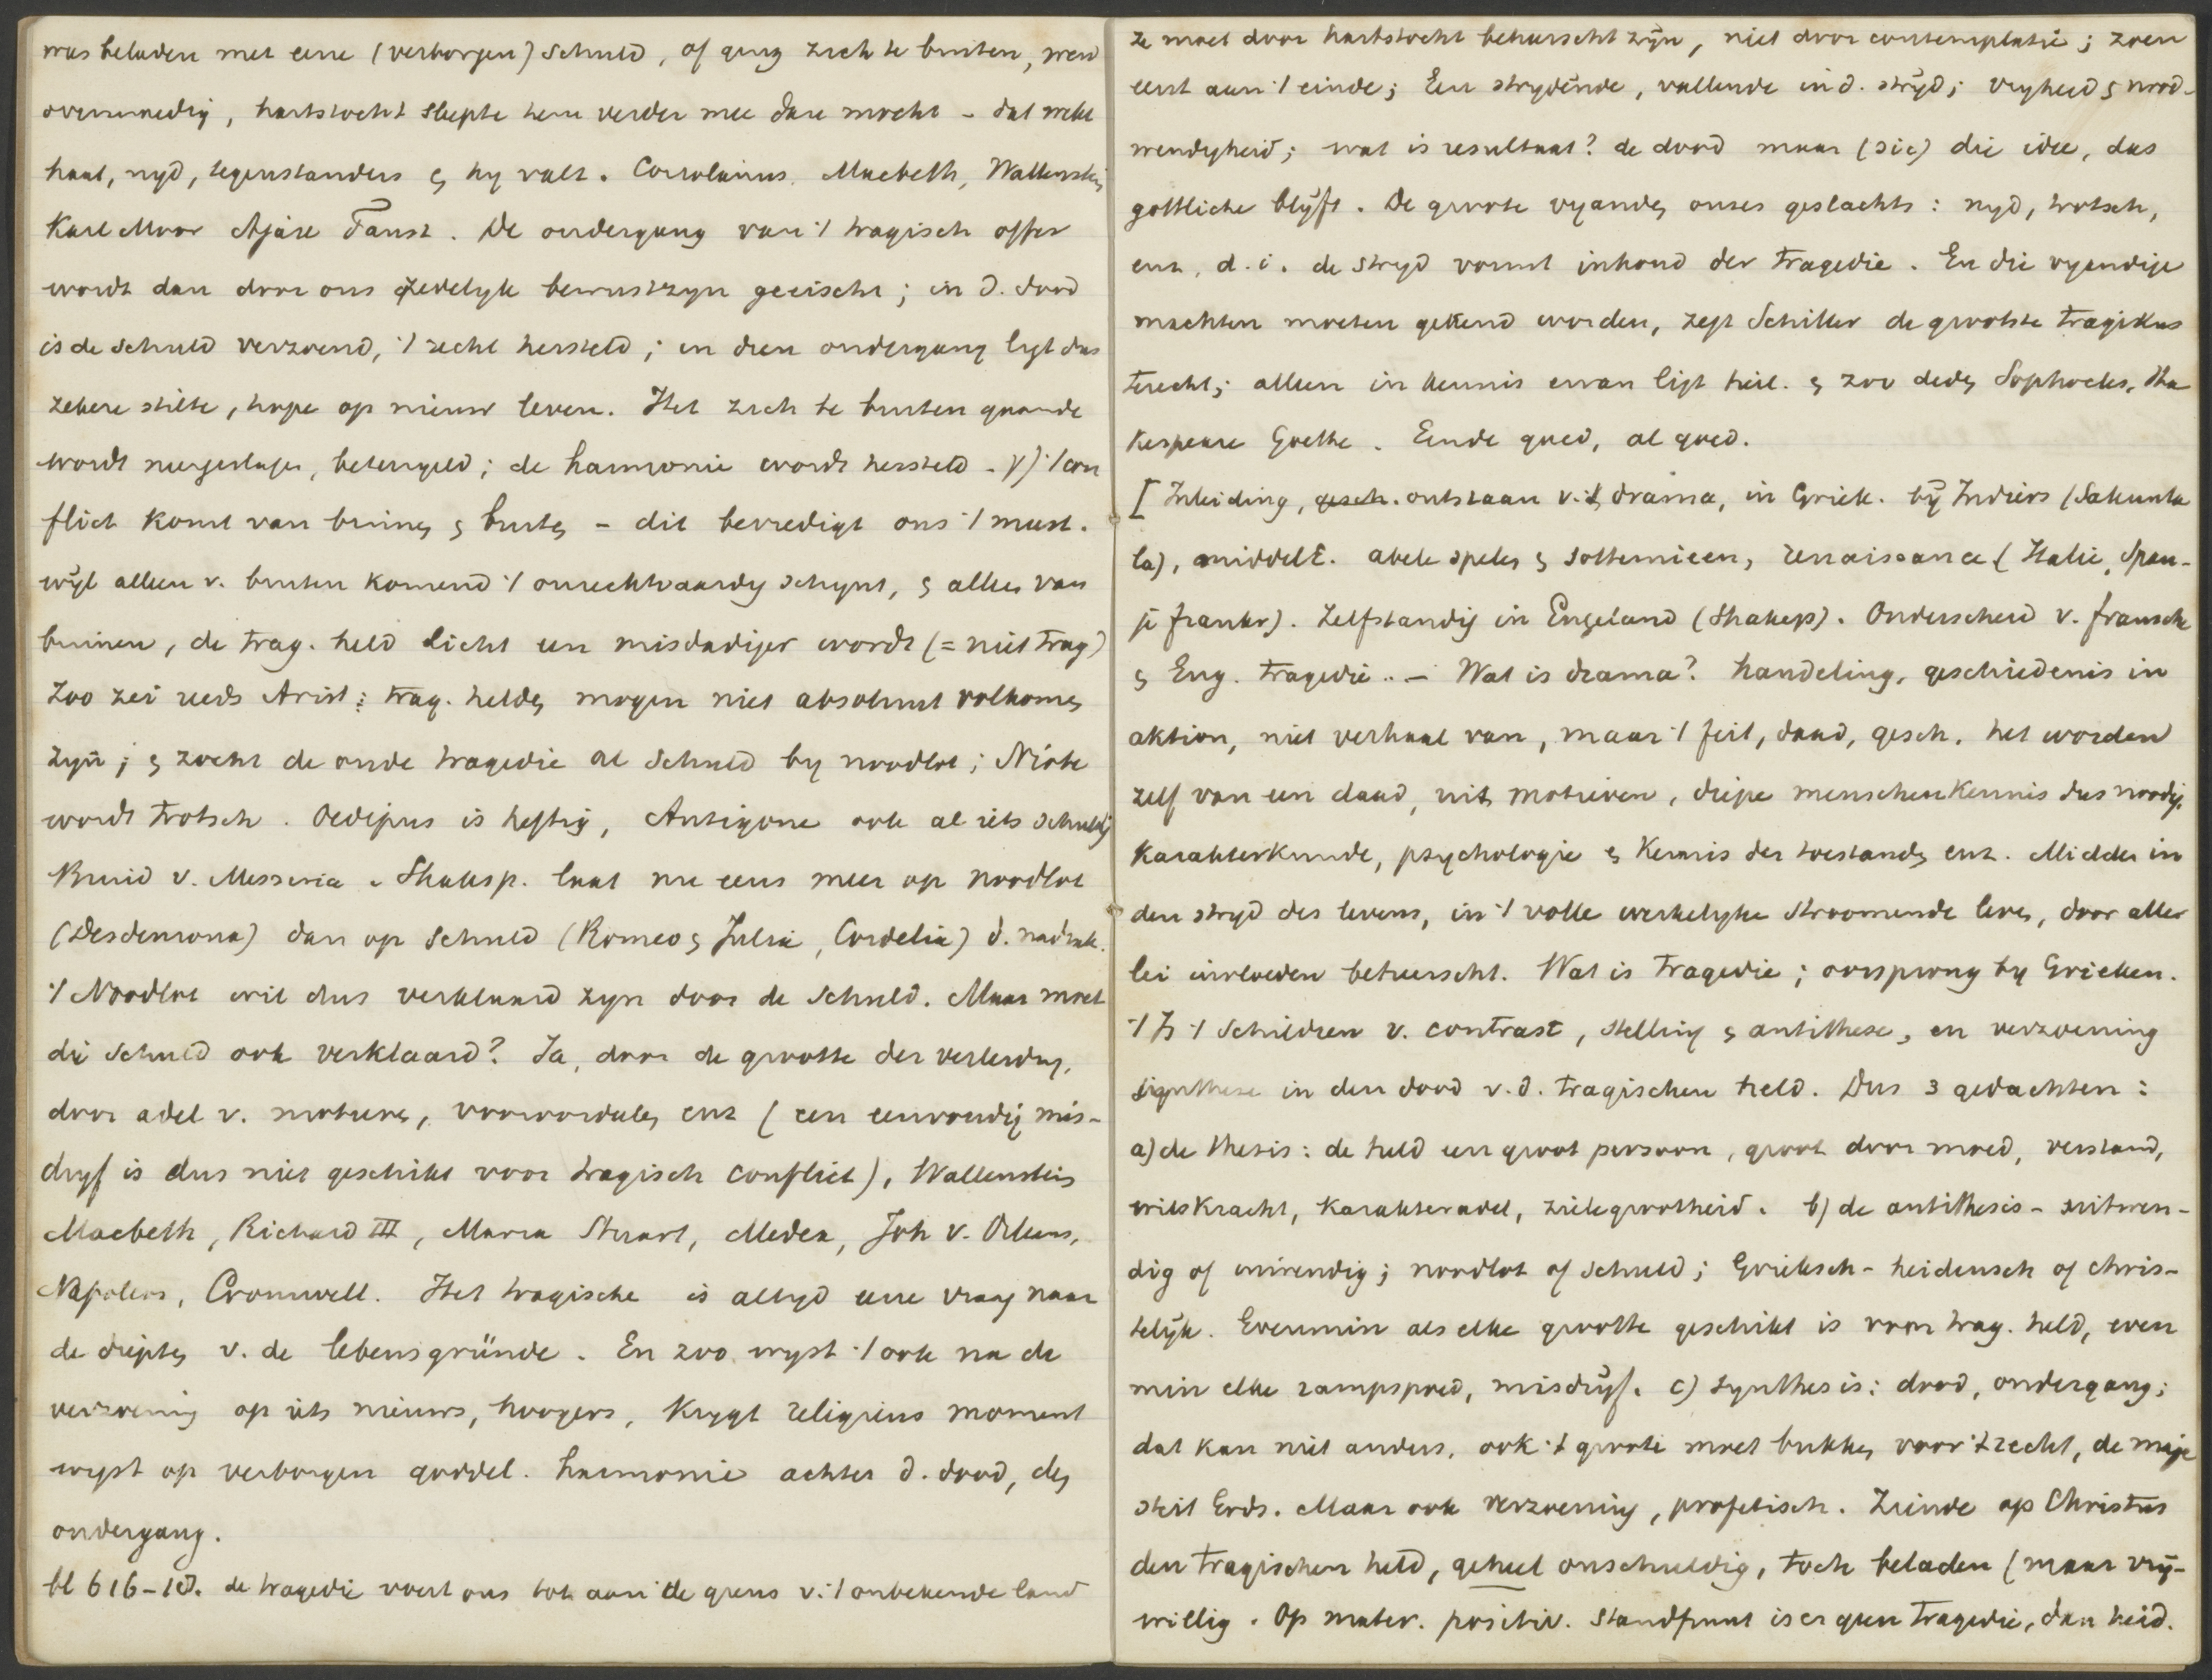 was beladen met eene (verborgen) schuld, of ging zich te buiten, werd
overmoedig, hartstocht sleepte hem verder mee dan mocht - dat wekt
haat, nyd, tegenstanders & hy valt. Coriolanus, Macbeth, Wallenstein
Karl Moor Ajax Faust. De ondergang van 't tragisch offer
wordt dan door ons zedelyk bewustzyn geeischt; in d. dood
is de schuld verzoend, 't recht hersteld; in dien ondergang ligt dus
zekere stilte, hope op nieuw leven. Het zich te buiten gaande
wordt neergeslagen, beteugeld; de harmonie wordt hersteld - γ) 't con
flict komt van binnen & buiten - dit bevredigt ons 't meest.
wyl alleen v. buiten komend 't onrechtvaardig schynt, & alleen van
binnen, de trag. held licht een misdadiger wordt (= niet trag)
Zoo zei reeds Arist: trag. helden mogen niet absoluut volkomen
zyn; & zocht de oude tragedie al schuld by noodlot; Niobe
wordt trotsch. Oedipus is heftig, Antigone ook al iets schuldig
Bruid v. Messina. Shaksp. laat nu eens meer op noodlot
(Desdemona) dan op schuld (Romeo & Julia, Cordelia) d. nadruk.
't Noodlot wil dus verklaard zyn door de schuld. Maar moet
die schuld ook verklaard? Ja, door de grootte der verleiding,
door adel v. motieven, vooroordeelen enz (een eenvoudig mis-
dryf is dus niet geschikt voor tragisch conflict), Wallenstein
Macbeth, Richard III, Maria Stuart, Medea, Joh v. Orleans,
Napoleon, Cromwell. Het tragische is altyd eene vraag naar
de diepten v. de lebensgründe. En zoo wyst 't ook na de
verzoening op iets nieuws, hoogers, krygt religieus moment
wyst op verborgen goddel. harmonie achter d. dood, den
ondergang.
bl 616-18. de tragedie voert ons tot aan de grens v. 't onbekende land
ze moet door hartstocht beheerscht zyn, niet door contemplatie; zoen
eerst aan 't einde; Een strydende, vallende in d. stryd; vryheid & nood-
wendigheid; wat is resultaat? de dood maar (sic) die idee, das
göttliche blyft. De groote vyanden onses geslachts: nyd, trotsch,
enz, d.i. de stryd vormt inhoud der tragedie. En die vyandige
machten moeten gekend worden, zegt Schiller de grootste tragikus
terecht; alleen in kennis ervan ligt heil. & zoo deden Sophocles, Sha
kespeare Goethe. Einde goed, al goed.
[Inleiding, gesch. ontstaan v. 't drama, in Griek. by Indiers (Sakunta
la), middelE. abele spelen & sotternieen, renaissance (Italie, Span-
je frankr). Zelfstandig in Engeland (Shakesp). Onderscheid v. fransche
& Eng. tragedie.. - Wat is drama? handeling, geschiedenis in
aktion, niet verhaal van, maar 't feit, daad, gesch. het worden
zelf van een daad, uit motieven, diepe menschenkennis dus noodig,
karakterkunde, psychologie & kennis der toestanden enz. Midden in
den stryd des levens, in 't volle werkelyke stroomende leven, door aller
lei invloeden beheerscht. Wat is tragedie; oorsprong by Grieken.
't Is 't schildren v. contrast, stelling & antithese, en verzoening
synthese in den dood v.d. tragischen held. Dus 3 gedachten:
a) de thesis: de held een groot persoon, groot door moed, verstand,
wilskracht, karakteradel, zielegrootheid. b) de antithesis - uitwen-
dig of inwendig; noodlot of schuld; Grieksch-heidensch of chris-
telyk. Evenmin als elke grootte geschikt is voor trag. held, even
min elke rampspoed, misdryf. c) synthesis: dood, ondergang;
dat kan niet anders, ook 't groote moet bukken voor 't recht, de maje
steit Gods. Maar ook verzoening, profetisch. Ziende op Christus
den tragischen held, geheel onschuldig, toch beladen (maar vry-
willig. Op mater. positiv. standpunt is er geen tragedie, dan heid.